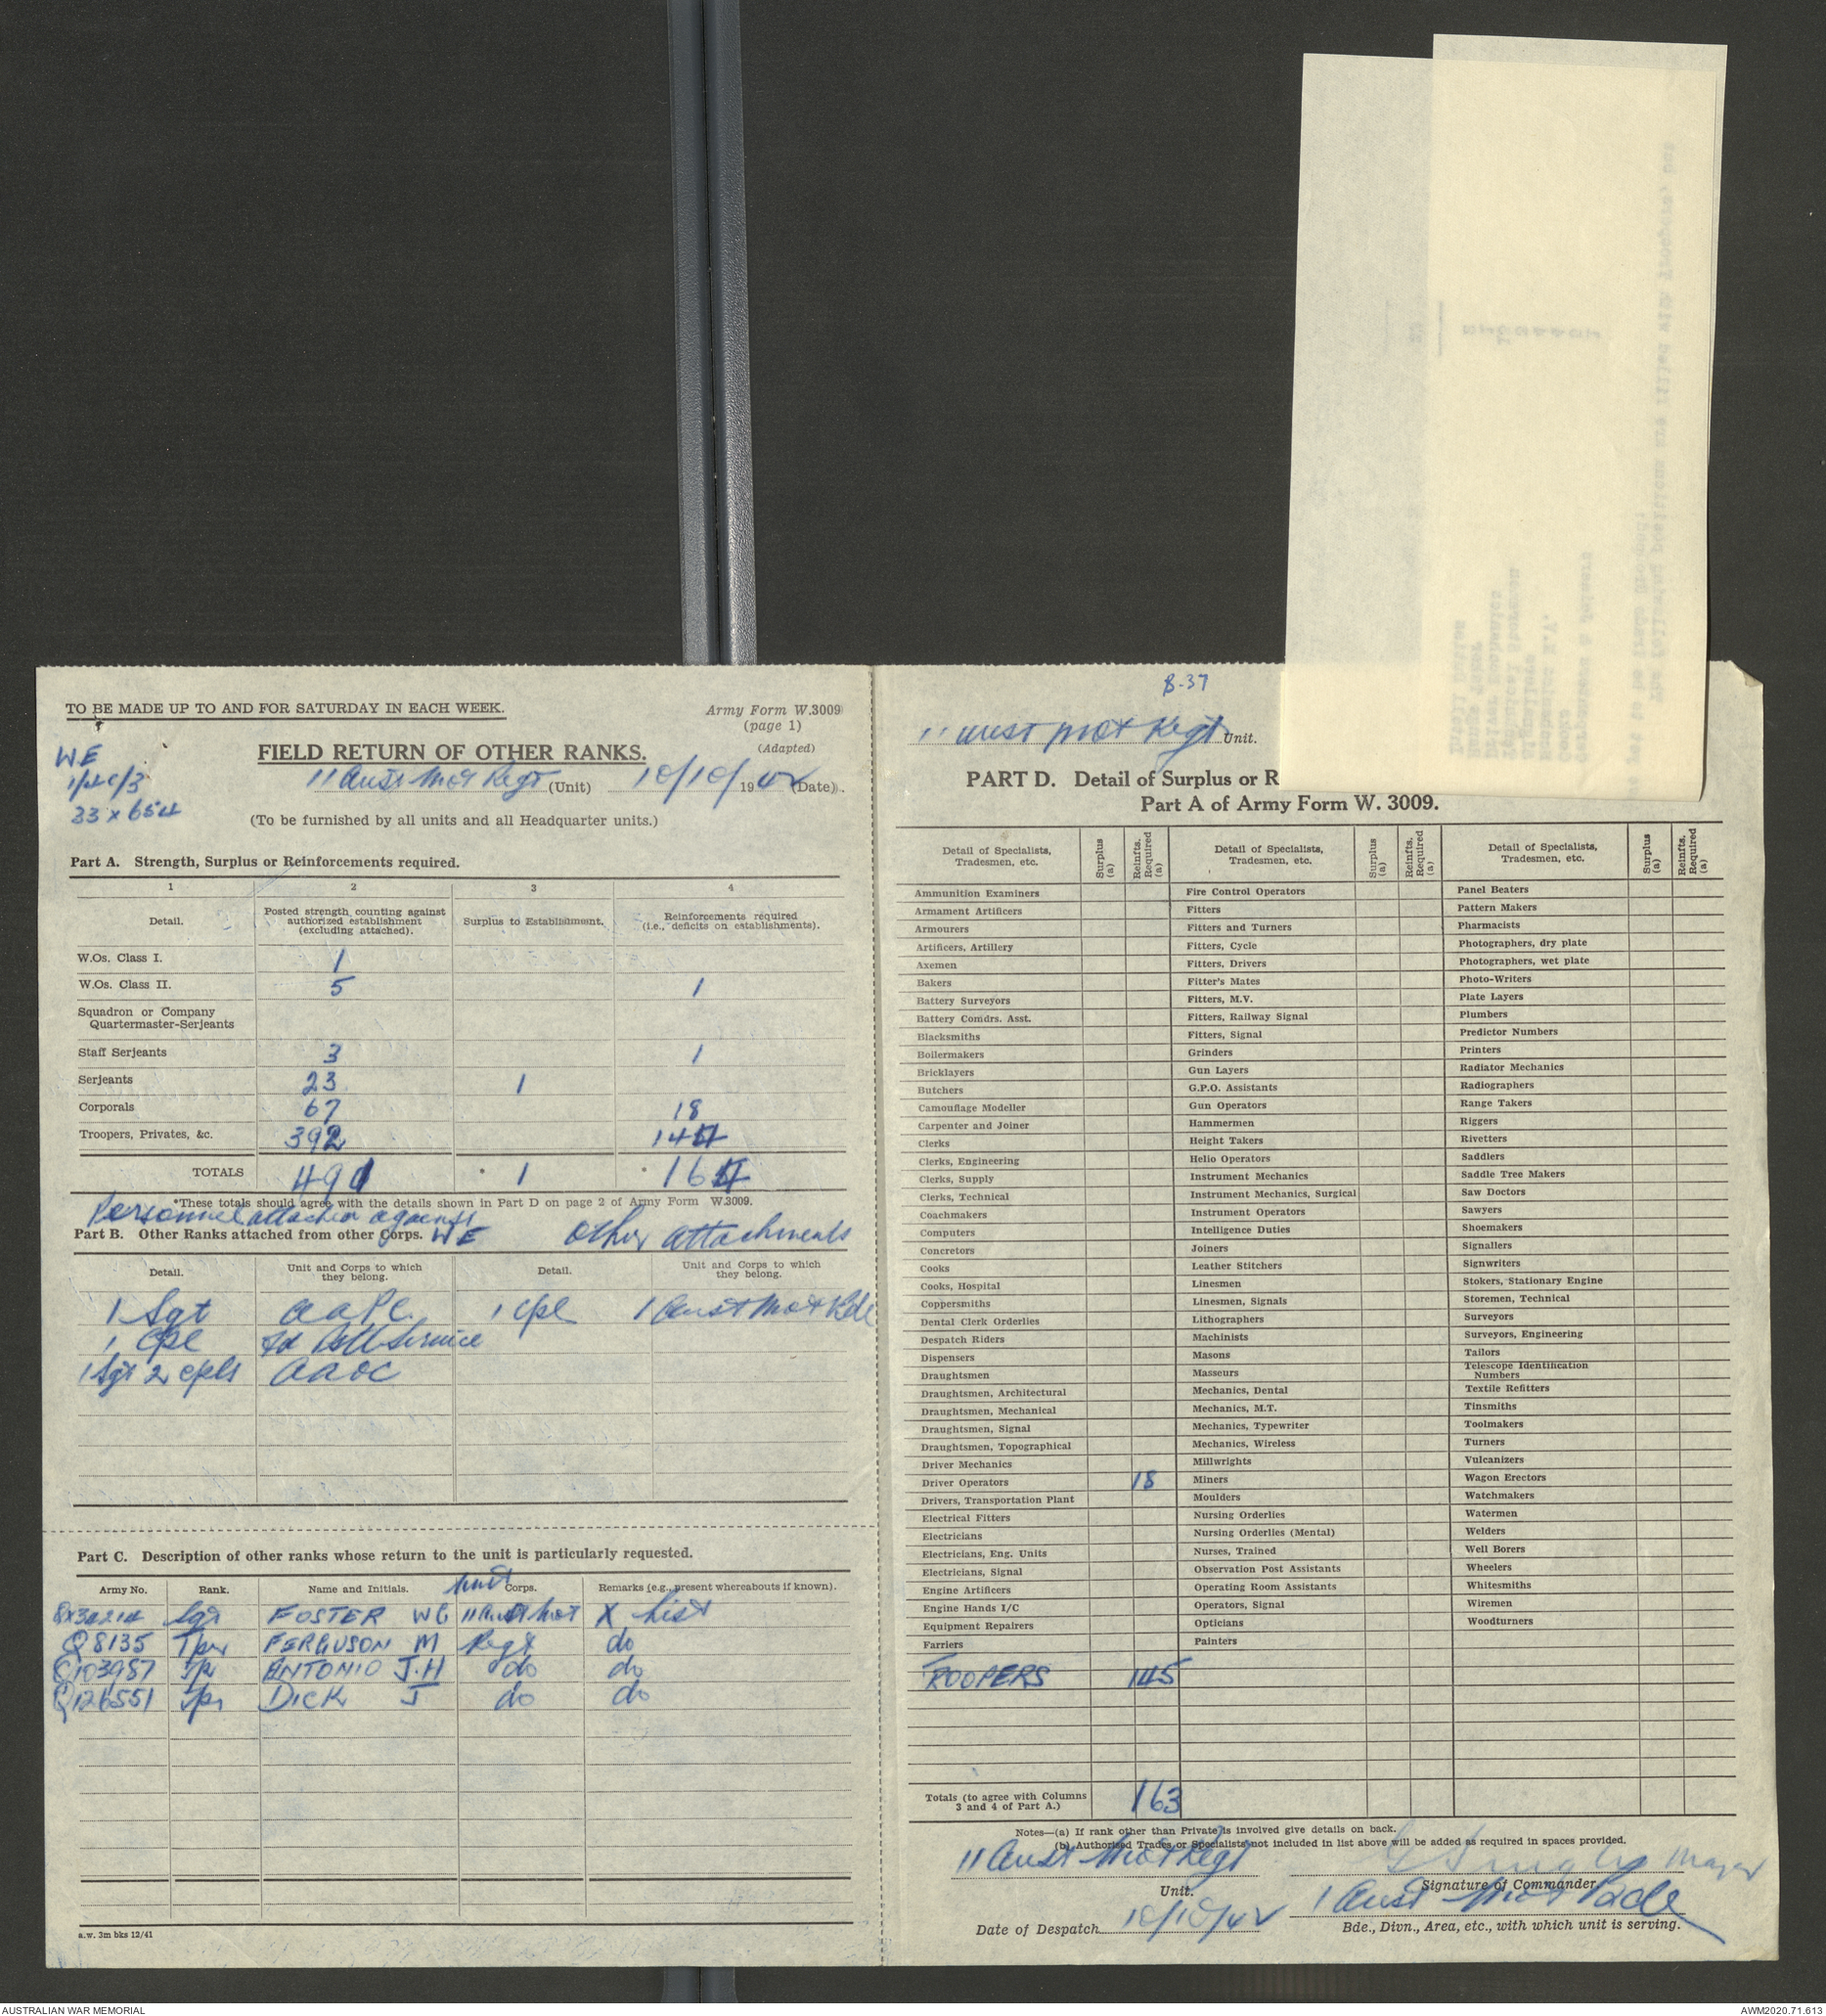 TO BE MADE UP TO AND FOR SATURDAY IN EACH WEEK.
Army Form W.3009
(page 1)
(Adapted)
WE
33 x 654
FIELD RETURN OF OTHER RANKS.
11 Aust Mot Regt (Unit) 10/10/1942 (Date).
(To be furnished by all units and all Headquarter units.)
Part A. Strength, Surplus or Reinforcements required.
1 2 3 4
Detail. Posted strength counting against authorized establishment (excluding attached). Surplus to Establishment. Reinforcements required (i.e., deficits on establishments).
W.Os. Class I. 1
W.Os. Class II. 5 1
Squadron or Company
Quartermaster-Serjeants
Staff Serjeants 3 1
Serjeants 23 1
Corporals 67 18
Troopers, Privates, &c. 392 144
TOTALS 491 * 1 * 164
*These totals should agree with the details shown in Part D on page 2 of Army Form W.3009.
Personnel attached against
Part B. Other Ranks attached from other Corps. WE Other attachments
Detail. Unit and Corps to which they belong. Detail. Unit and Corps to which they belong.
1 Sgt AAPC. 1 Cpl 1 Aust Mot Bde
1 Cpl Service
1 Sgt 2 Cpls AAOC
Part C. Description of other ranks whose return to the unit is particularly requested.
Army No. Rank. Name and Initials. Unit Corps. Remarks (e.g., present whereabouts if known).
Sgt FOSTER WC 11 Aust Mot X List
Q8135 Tpr FERGUSON M Regt do
Q103987 Tpr ANTONIO J.H do do
Q126551 Tpr DICK J do do
a.w. 3m bks 12/41
8-37
11 Aust Mot Regt Unit.
PART D. Detail of Surplus or R
Part A of Army Form W. 3009.
Detail of Specialists, Tradesmen, etc. Surplus (a) Reinfts. Required (a) Detail of Specialists, Tradesmen, etc. Surplus (a) Reinfts. Required (a) Detail of Specialists, Tradesmen, etc. Surplus (a) Reinfts. Required (a)
Ammunition Examiners Fire Control Operators Panel Beaters
Armament Artificers Fitters Pattern Makers
Armourers Fitters and Turners Pharmacists
Artificers, Artillery Fitters, Cycle Photographers, dry plate
Axemen Fitters, Drivers Photographers, wet plate
Bakers Fitter's Mates Photo-Writers
Battery Surveyors Fitters, M.V. Plate Layers
Battery Comdrs. Asst. Fitters, Railway Signal Plumbers
Blacksmiths Fitters, Signal Predictor Numbers
Boilermakers Grinders Printers
Bricklayers Gun Layers Radiator Mechanics
Butchers G.P.O. Assistants Radiographers
Camouflage Modeller Gun Operators Range Takers
Carpenter and Joiner Hammermen Riggers
Clerks Height Takers Rivetters
Clerks, Engineering Helio Operators Saddlers
Clerks, Supply Instrument Mechanics Saddle Tree Makers
Clerks, Technical Instrument Mechanics, Surgical Saw Doctors
Coachmakers Instrument Operators Sawyers
Computers Intelligence Duties Shoemakers
Concretors Joiners Signallers
Cooks Leather Stitchers Signwriters
Cooks, Hospital Linesmen Stokers, Stationary Engine
Coppersmiths Linesmen, Signals Storemen, Technical
Dental Clerk Orderlies Lithographers Surveyors
Despatch Riders Machinists Surveyors, Engineering
Dispensers Masons Tailors
Draughtsmen Masseurs Telescope Identification Numbers
Draughtsmen, Architectural Mechanics, Dental Textile Refitters
Draughtsmen, Mechanical Mechanics, M.T. Tinsmiths
Draughtsmen, Signal Mechanics, Typewriter Toolmakers
Draughtsmen, Topographical Mechanics, Wireless Turners
Driver Mechanics Millwrights Vulcanizers
Driver Operators 18 Miners Wagon Erectors
Drivers, Transportation Plant Moulders Watchmakers
Electrical Fitters Nursing Orderlies Watermen
Electricians Nursing Orderlies (Mental) Welders
Electricians, Eng. Units Nurses, Trained Well Borers
Electricians, Signal Observation Post Assistants Wheelers
Engine Artificers Operating Room Assistants Whitesmiths
Engine Hands I/C Operators, Signal Wiremen
Equipment Repairers Opticians Woodturners
Farriers Painters
TROOPERS 145
Totals (to agree with Columns 3 and 4 of Part A.) 163
Notes—(a) If rank other than Private is involved give details on back.
(b) Authorised Trades or Specialists not included in list above will be added as required in spaces provided.
11 Aust Mot Regt Major
Unit. Signature of Commander
1 Aust Mot Bde
Date of Despatch 10/10/42 Bde., Divn., Area, etc., with which unit is serving.
AUSTRALIAN WAR MEMORIAL
AWM2020.71.613